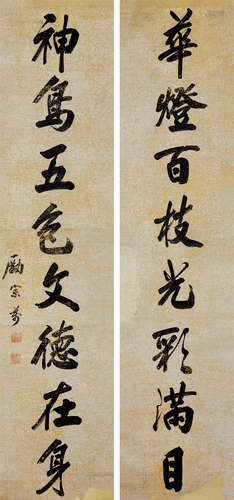 華燈百枝光彩滿目
神鳥五色文德在身
勵宗萬